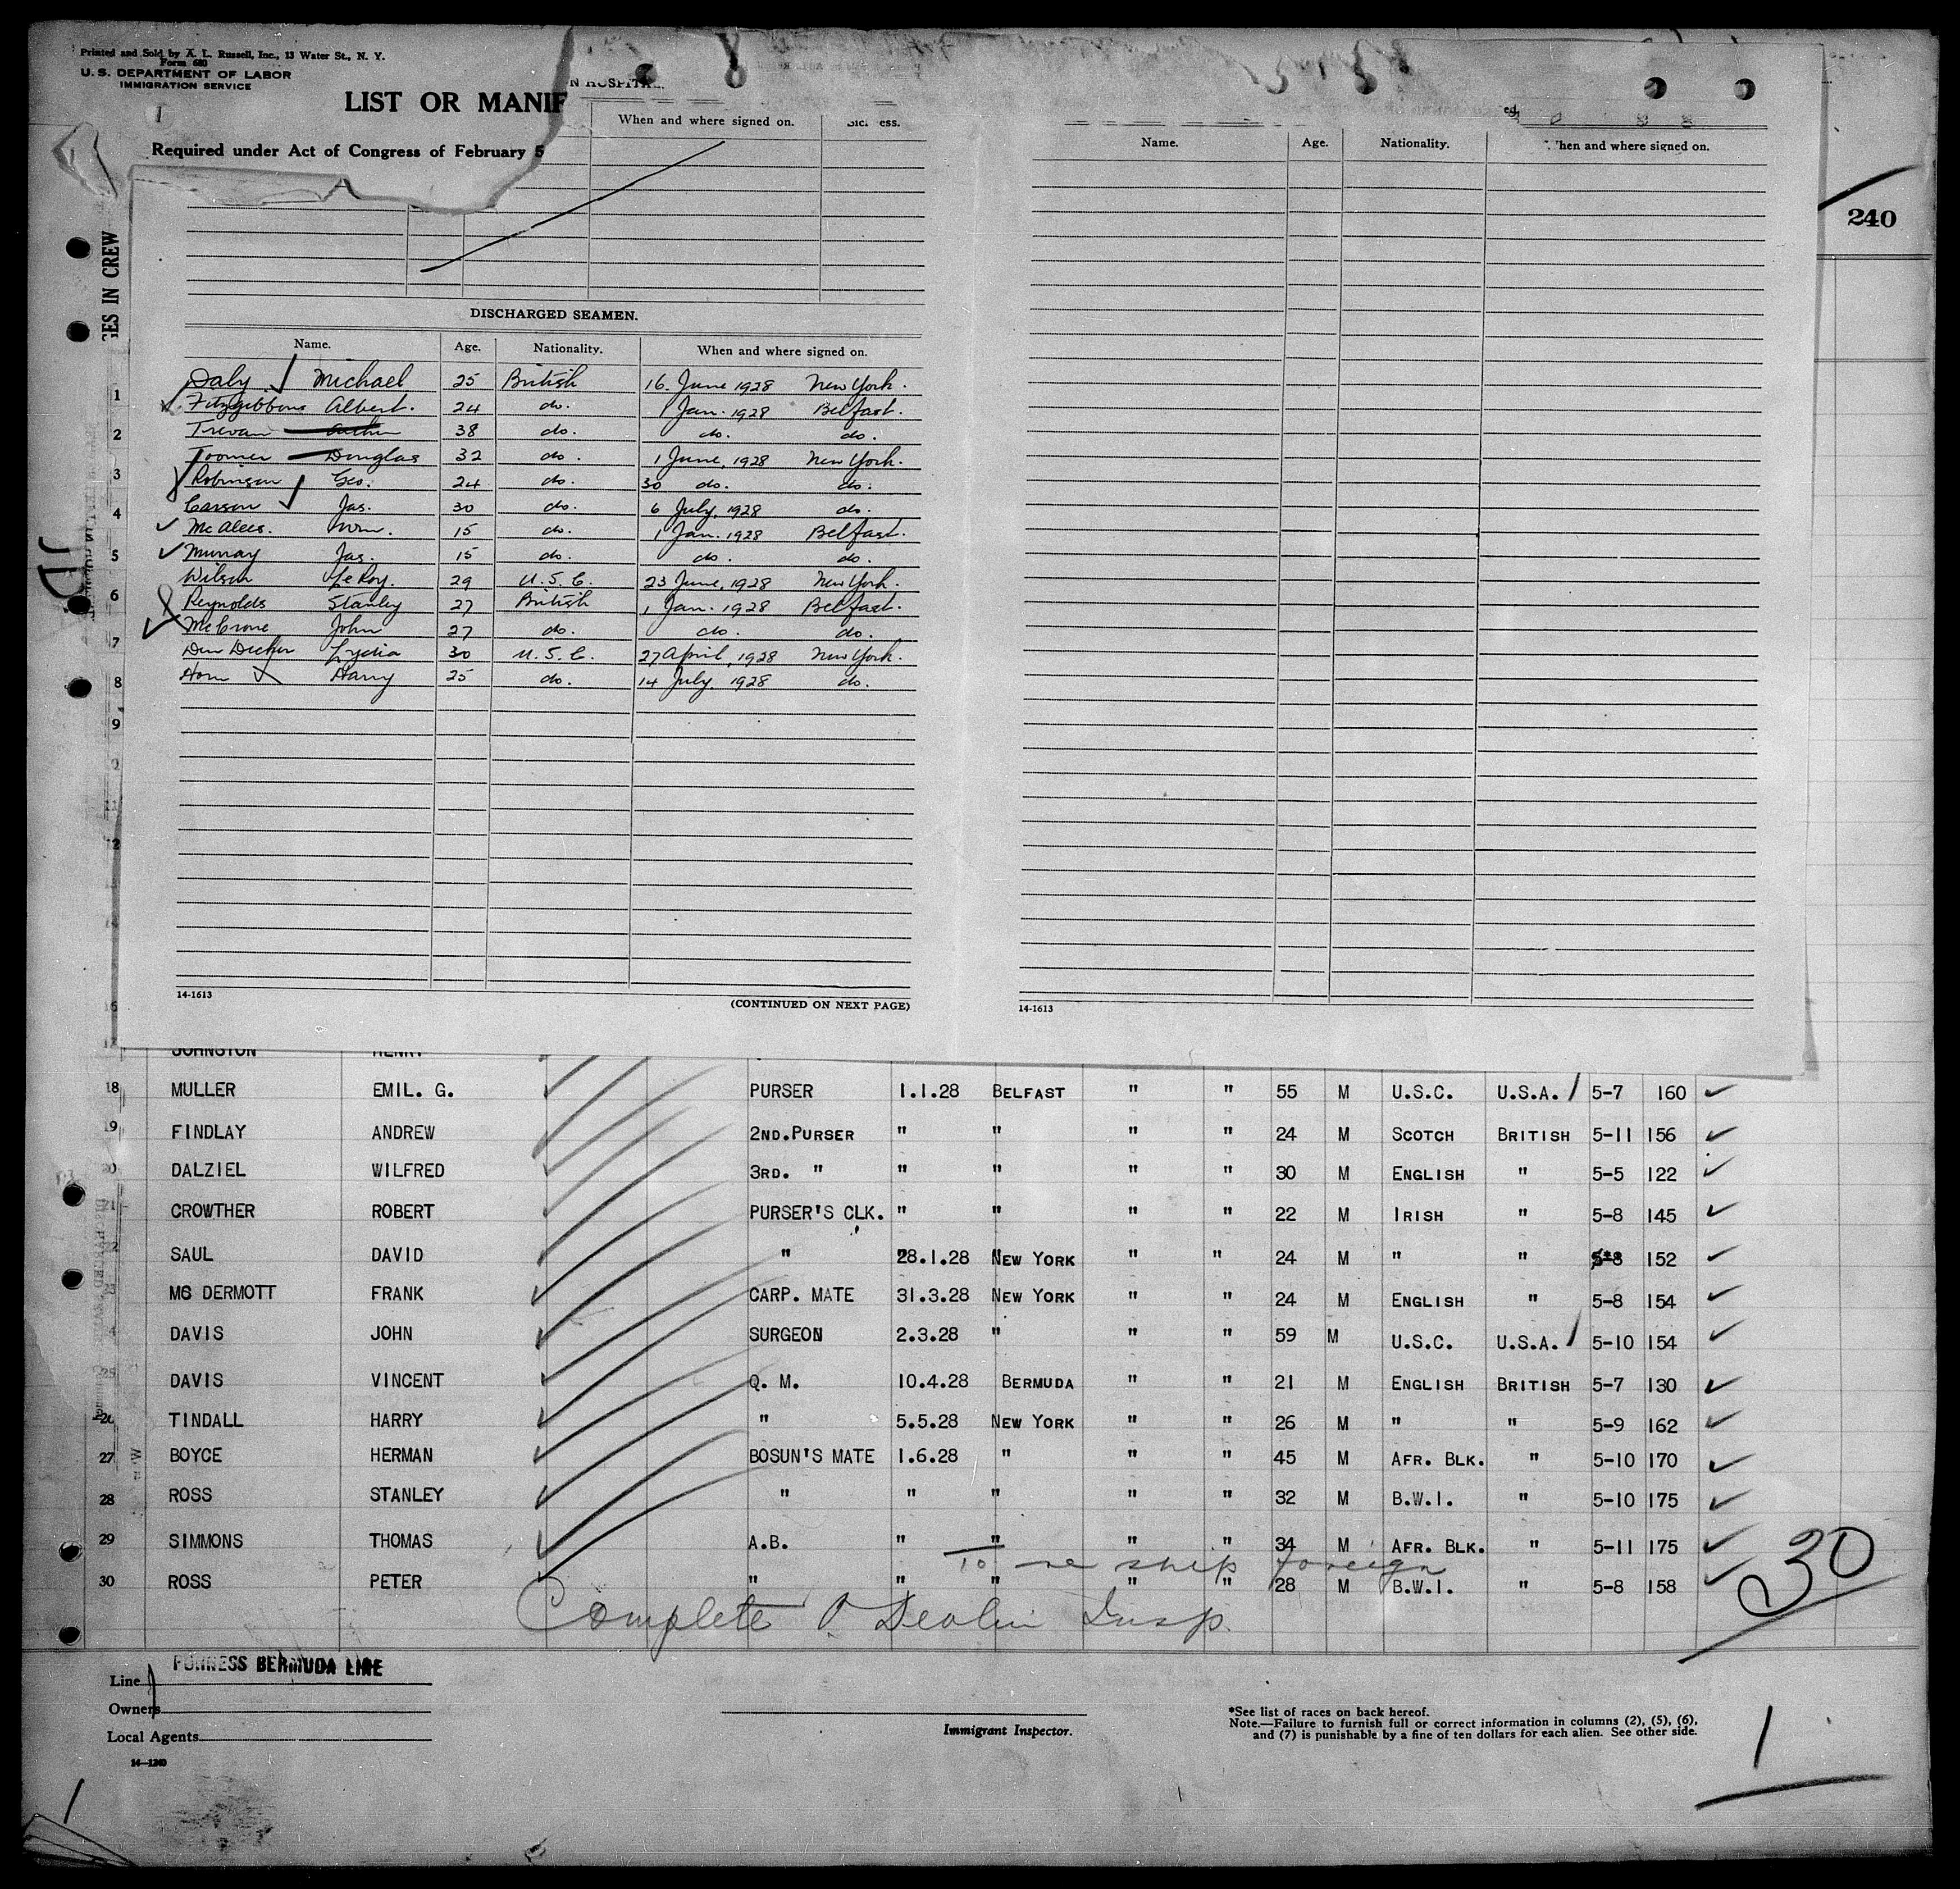 Printed and Sold by A. L. Russell, Inc., 13 Water St., N. Y.
Form 680
U. S. DEPARTMENT OF LABOR
IMMIGRATION SERVICE
LIST OR MANIF
Required under Act of Congress of February 5
N HOSPITAL
When and where signed on.
Name. Age. Nationality. When and where signed on.
240
GES IN CREW
DISCHARGED SEAMEN.
Name. Age. Nationality. When and where signed on.
Daly Michael 25 British 16. June 1928 New York.
Fitzgibbons Albert. 24 do. 1 Jan. 1928 Belfast.
Trevan 38 do. do. do.
Toomer Douglas 32 do. 1 June, 1928 New York.
Robinson Geo. 24 do. 30 do. do.
Carson Jas. 30 do. 6 July, 1928 do.
McAlees. Wm. 15 do. 1 Jan. 1928 Belfast.
Murray Jas. 15 do. do. do.
Wilson LeRoy. 29 U.S.C. 23 June, 1928 New York.
Reynolds Stanley 27 British 1 Jan. 1928 Belfast.
McCrone John 27 do. do. do.
Lydia 30 U.S.C. 27 April, 1928 New York.
Horn Harry 25 do. 14 July, 1928 do.
14-1613 (CONTINUED ON NEXT PAGE) 14-1613
JOHNSTON HENRY
18 MULLER EMIL. G. PURSER 1.1.28 BELFAST " " 55 M U.S.C. U.S.A. 5-7 160
19 FINDLAY ANDREW 2ND.PURSER " " " " 24 M SCOTCH BRITISH 5-11 156
20 DALZIEL WILFRED 3RD. " " " " " 30 M ENGLISH " 5-5 122
21 CROWTHER ROBERT PURSER'S CLK. " " " " 22 M IRISH " 5-8 145
22 SAUL DAVID " 28.1.28 NEW YORK " " 24 M " " 5-8 152
MC DERMOTT FRANK CARP. MATE 31.3.28 NEW YORK " " 24 M ENGLISH " 5-8 154
DAVIS JOHN SURGEON 2.3.28 " " " 59 M U.S.C. U.S.A. 5-10 154
25 DAVIS VINCENT Q. M. 10.4.28 BERMUDA " " 21 M ENGLISH BRITISH 5-7 130
26 TINDALL HARRY " 5.5.28 NEW YORK " " 26 M " " 5-9 162
27 BOYCE HERMAN BOSUN'S MATE 1.6.28 " " " 45 M AFR. BLK. " 5-10 170
28 ROSS STANLEY " " " " " 32 M B.W.I. " 5-10 175
29 SIMMONS THOMAS A.B. " " " " 34 M AFR. BLK. " 5-11 175
10 re ship foreign
30 ROSS PETER " " " " " 28 M B.W.I. " 5-8 158
30
Complete Insp.
FURNESS BERMUDA LINE
Line
Owners
Local Agents
14-1240
Immigrant Inspector.
*See list of races on back hereof.
Note.—Failure to furnish full or correct information in columns (2), (5), (6),
and (7) is punishable by a fine of ten dollars for each alien. See other side.
1